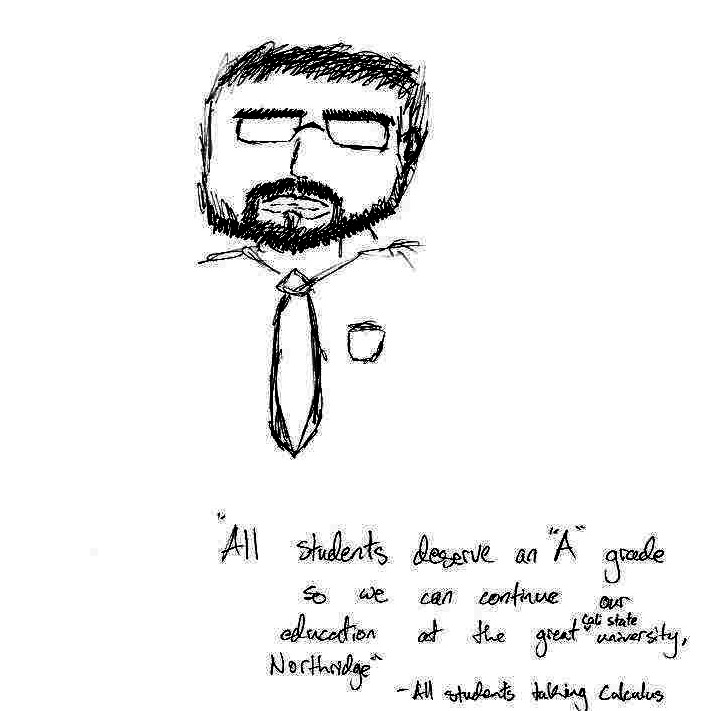 "All students deserve an "A" grade
so we can continue our
education at the great cali state university,
Northridge"
-All students taking Calculus